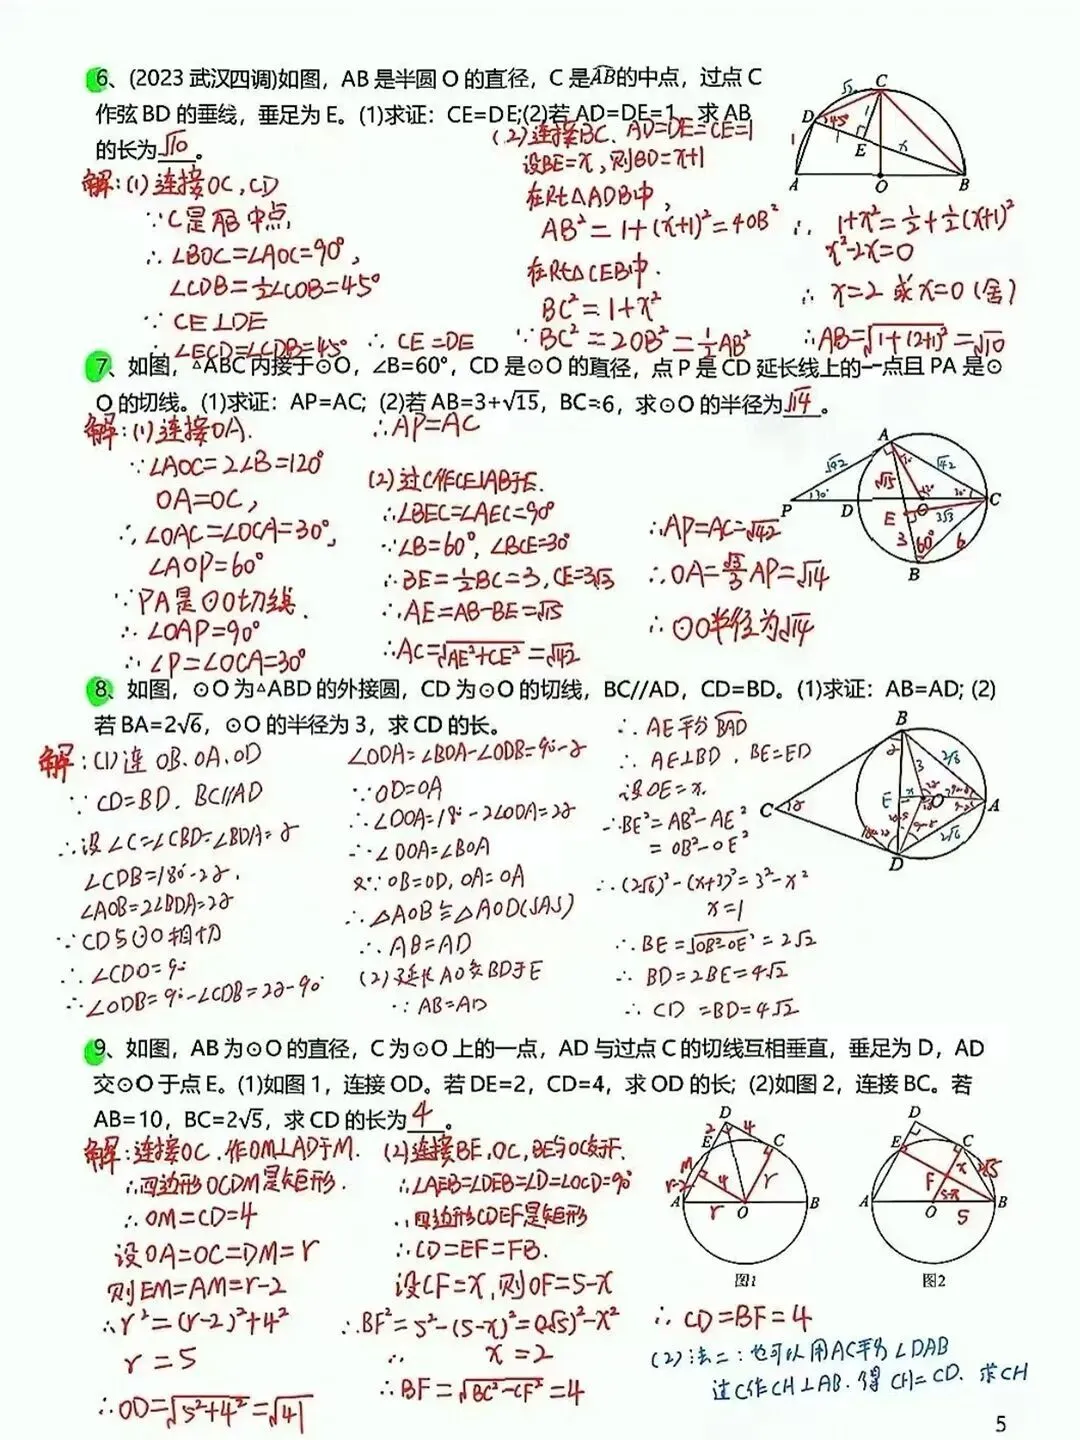 6、(2023 武汉四调)如图，AB 是半圆 O 的直径，C 是AB的中点，过点 C
作弦 BD 的垂线，垂足为 E。(1)求证：CE=DE;(2)若 AD=DE=1，求 AB
的长为√10。
解:(1)连接OC,CD
∵C是AB中点,
∴∠BOC=∠AOC=90°,
∠CDB=½∠COB=45°
∵CE⊥DE
∴∠ECD=∠CDB=45° ∴CE=DE
(2)连接BC. AD=DE=CE=1
设BE=x,则BD=x+1
在Rt△ADB中,
AB²=1+(x+1)²=4OB²
在Rt△CEB中.
BC²=1+x²
∵BC²=2OB²=½AB²
∴1+x²=½+½(x+1)²
x²-2x=0
∴x=2 或x=0(舍)
∴AB=√1+(2+1)²=√10
7、如图，△ABC 内接于⊙O，∠B=60°，CD 是⊙O 的直径，点 P 是 CD 延长线上的一点且 PA 是⊙
O 的切线。(1)求证：AP=AC；(2)若 AB=3+√15，BC=6，求⊙O 的半径为√14。
解:(1)连接OA.
∵∠AOC=2∠B=120°
OA=OC,
∴∠OAC=∠OCA=30°,
∠AOP=60°
∵PA是⊙O切线.
∴∠OAP=90°
∴∠P=∠OCA=30°
∴AP=AC
(2)过C作CE⊥AB于E.
∴∠BEC=∠AEC=90°
∵∠B=60°,∠BCE=30°
∴BE=½BC=3,CE=3√3
∴AE=AB-BE=√15
∴AC=√AE²+CE²=√42
∴AP=AC=√42
∴OA=√3/3AP=√14
∴⊙O半径为√14
8、如图，⊙O 为△ABD 的外接圆，CD 为⊙O 的切线，BC//AD，CD=BD。(1)求证：AB=AD; (2)
若 BA=2√6，⊙O 的半径为 3，求 CD 的长。
解:(1)连 OB.OA.OD
∵CD=BD. BC//AD
∴设∠C=∠CBD=∠BDA=α
∠CDB=180-2α.
∠AOB=2∠BDA=2α
∵CD与⊙O相切
∴∠CDO=90
∴∠ODB=90-∠CDB=2α-90
∠ODA=∠BDA-∠ODB=90-α
∵OD=OA
∴∠DOA=180-2∠ODA=2α
∴∠DOA=∠BOA
又∵OB=OD,OA=OA
∴△AOB≌△AOD(SAS)
∴AB=AD
(2)延长AO交BD于E
∵AB=AD
∴AE平分BAD
∴AE⊥BD.BE=ED
设OE=x.
∴BE²=AB²-AE²
=OB²-OE²
∴(2√6)²-(x+3)²=3²-x²
x=1
∴BE=√OB²-OE²=2√2
∴BD=2BE=4√2
∴CD=BD=4√2
9、如图，AB 为⊙O 的直径，C 为⊙O 上的一点，AD 与过点 C 的切线互相垂直，垂足为 D，AD
交⊙O 于点 E。(1)如图 1，连接 OD。若 DE=2，CD=4，求 OD 的长; (2)如图 2，连接 BC。若
AB=10，BC=2√5，求 CD 的长为4。
解:连接OC.作OM⊥AD于M.
∴四边形OCDM是矩形.
∴OM=CD=4
设OA=OC=DM=r
则EM=AM=r-2
∴r²=(r-2)²+4²
r=5
∴OD=√5²+4²=√41
(2)连接BE,OC,BE与OC交于F.
∴∠AEB=∠DEB=∠D=∠OCD=90°
∴四边形CDEF是矩形
∴CD=EF=FB.
设CF=x,则OF=5-x
∴BF²=5²-(5-x)²=(2√5)²-x²
∴x=2
∴BF=√BC²-CF²=4
图1
图2
∴CD=BF=4
(2)法二:也可以用AC平分∠DAB
过C作CH⊥AB.得CH=CD.求CH
5